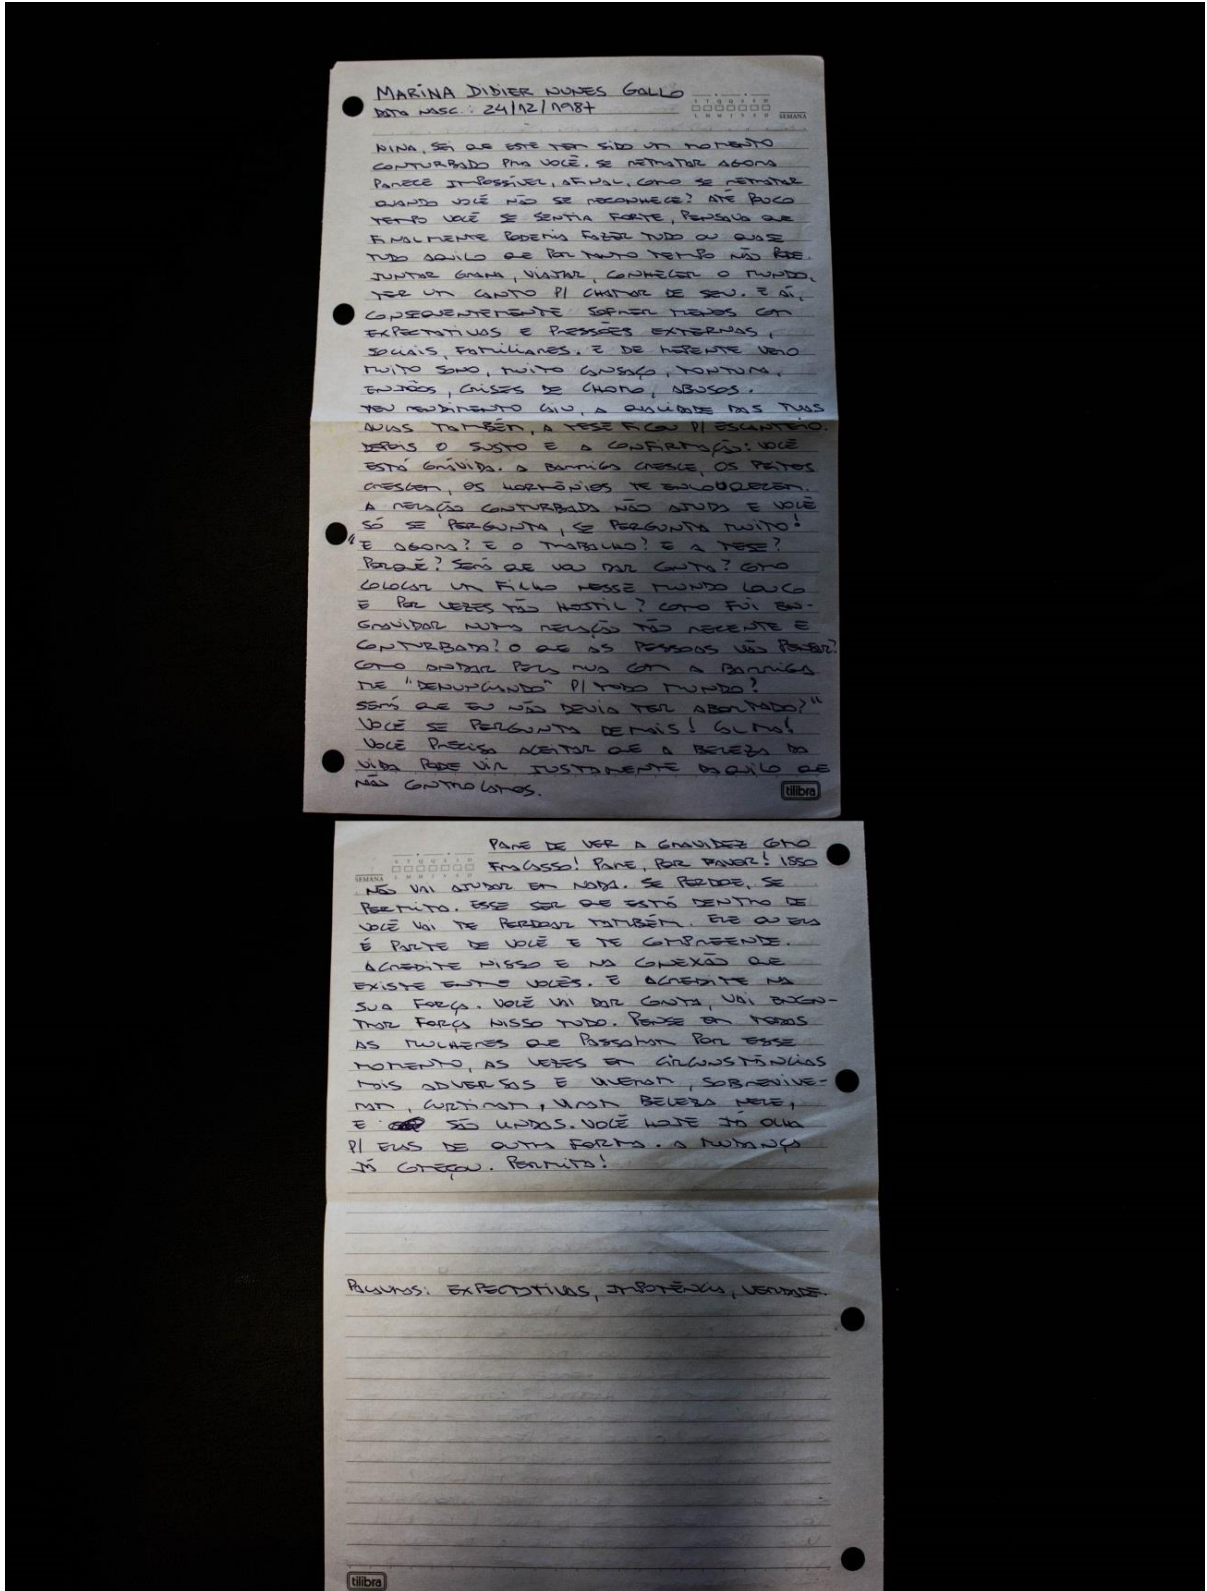 MARINA DIDIER NUNES GALLO
DATA NASC.: 24/12/1987
S T Q Q S S D
L M M J V S D
SEMANA
NINA, SEI QUE ESTE TEM SIDO UM MOMENTO
CONTURBADO PRA VOCÊ. SE RETRATAR AGORA
PARECE IMPOSSÍVEL, AFINAL, COMO SE RETRATAR
QUANDO VOCÊ NÃO SE RECONHECE? ATÉ POUCO
TEMPO VOCÊ SE SENTIA FORTE, PENSAVA QUE
FINALMENTE PODERIA FAZER TUDO OU QUASE
TUDO AQUILO QUE POR TANTO TEMPO NÃO PODE.
JUNTAR GRANA, VIAJAR, CONHECER O MUNDO,
TER UM CANTO P/ CHAMAR DE SEU. E AÍ,
CONSEQUENTEMENTE SOFRER MENOS COM
EXPECTATIVAS E PRESSÕES EXTERNAS,
SOCIAIS, FAMILIARES. E DE REPENTE VEIO
MUITO SONO, MUITO CANSAÇO, TONTURA,
ENJÔOS, CRISES DE CHORO, ABUSOS.
TEU RENDIMENTO CAIU, A QUALIDADE DAS TUAS
AULAS TAMBÉM, A TESE FICOU P/ ESCANTEIO.
DEPOIS O SUSTO E A CONFIRMAÇÃO: VOCÊ
ESTÁ GRÁVIDA. A BARRIGA CRESCE, OS PEITOS
CRESCEM, OS HORMÔNIOS TE ENLOUQUECEM.
A RELAÇÃO CONTURBADA NÃO AJUDA E VOCÊ
SÓ SE PERGUNTA, SE PERGUNTA MUITO!
"E AGORA? E O TRABALHO? E A TESE?
PORQUÊ? SERÁ QUE VOU DAR CONTA? COMO
COLOCAR UM FILHO NESSE MUNDO LOUCO
E POR VEZES TÃO HOSTIL? COMO FUI EN-
GRAVIDAR NUMA RELAÇÃO TÃO RECENTE E
CONTURBADA? O QUE AS PESSOAS VÃO PENSAR?
COMO ANDAR PELA RUA COM A BARRIGA
ME "DENUNCIANDO" P/ TODO MUNDO?
SERÁ QUE EU NÃO DEVIA TER ABORTADO?"
VOCÊ SE PERGUNTA DEMAIS! CALMA!
VOCÊ PRECISA ACEITAR QUE A BELEZA DA
VIDA PODE VIR JUSTAMENTE DAQUILO QUE
NÃO CONTROLAMOS.
tilibra
PARE DE VER A GRAVIDEZ COMO
S T Q Q S S D
SEMANA L M M J V S D
FRACASSO! PARE, POR FAVOR! ISSO
NÃO VAI AJUDAR EM NADA. SE PERDOE, SE
PERMITA. ESSE SER QUE ESTÁ DENTRO DE
VOCÊ VAI TE PERDOAR TAMBÉM. ELE OU ELA
É PARTE DE VOCÊ E TE COMPREENDE.
ACREDITE NISSO E NA CONEXÃO QUE
EXISTE ENTRE VOCÊS. E ACREDITE NA
SUA FORÇA. VOCÊ VAI DAR CONTA, VAI ENCON-
TRAR FORÇA NISSO TUDO. PENSE EM TODAS
AS MULHERES QUE PASSARAM POR ESSE
MOMENTO, AS VEZES EM CIRCUNSTÂNCIAS
MAIS ADVERSAS E VIVERAM, SOBREVIVE-
RAM, CURTIRAM, VIRAM BELEZA NELE,
E SÃO LINDAS. VOCÊ HOJE JÁ OLHA
P/ ELAS DE OUTRA FORMA. A MUDANÇA
JÁ COMEÇOU. PERMITA!
PALAVRAS: EXPECTATIVAS, IMPOTÊNCIA, VERDADE.
tilibra